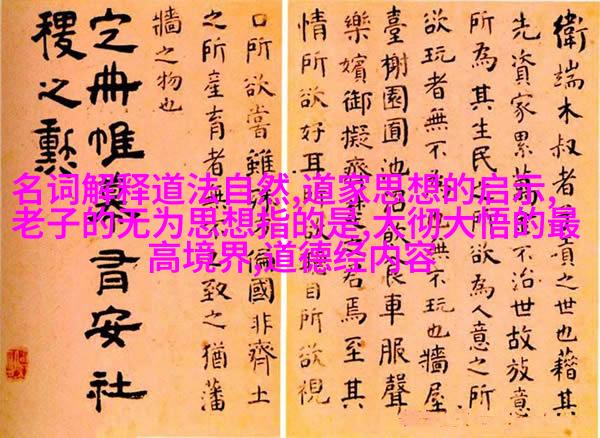 衛端木叔者子貢之世也藉其
先資家累萬金不治世故放意
所為其生民之所欲為人意之所
欲玩者無不為也無不玩也牆屋
臺榭園囿池沼飲食車服聲
樂嬪御擬齊楚之君焉至其
情所欲好耳所欲聽目所欲視
口所欲嘗雖殊方偏國非齊土
之所產育者無不必致之猶藩
牆之物也
定冊帷幕有安社
稷之勳
名词解释道法自然,道家思想的启示,
老子的无为思想指的是,大彻大悟的最
高境界,道德经内容